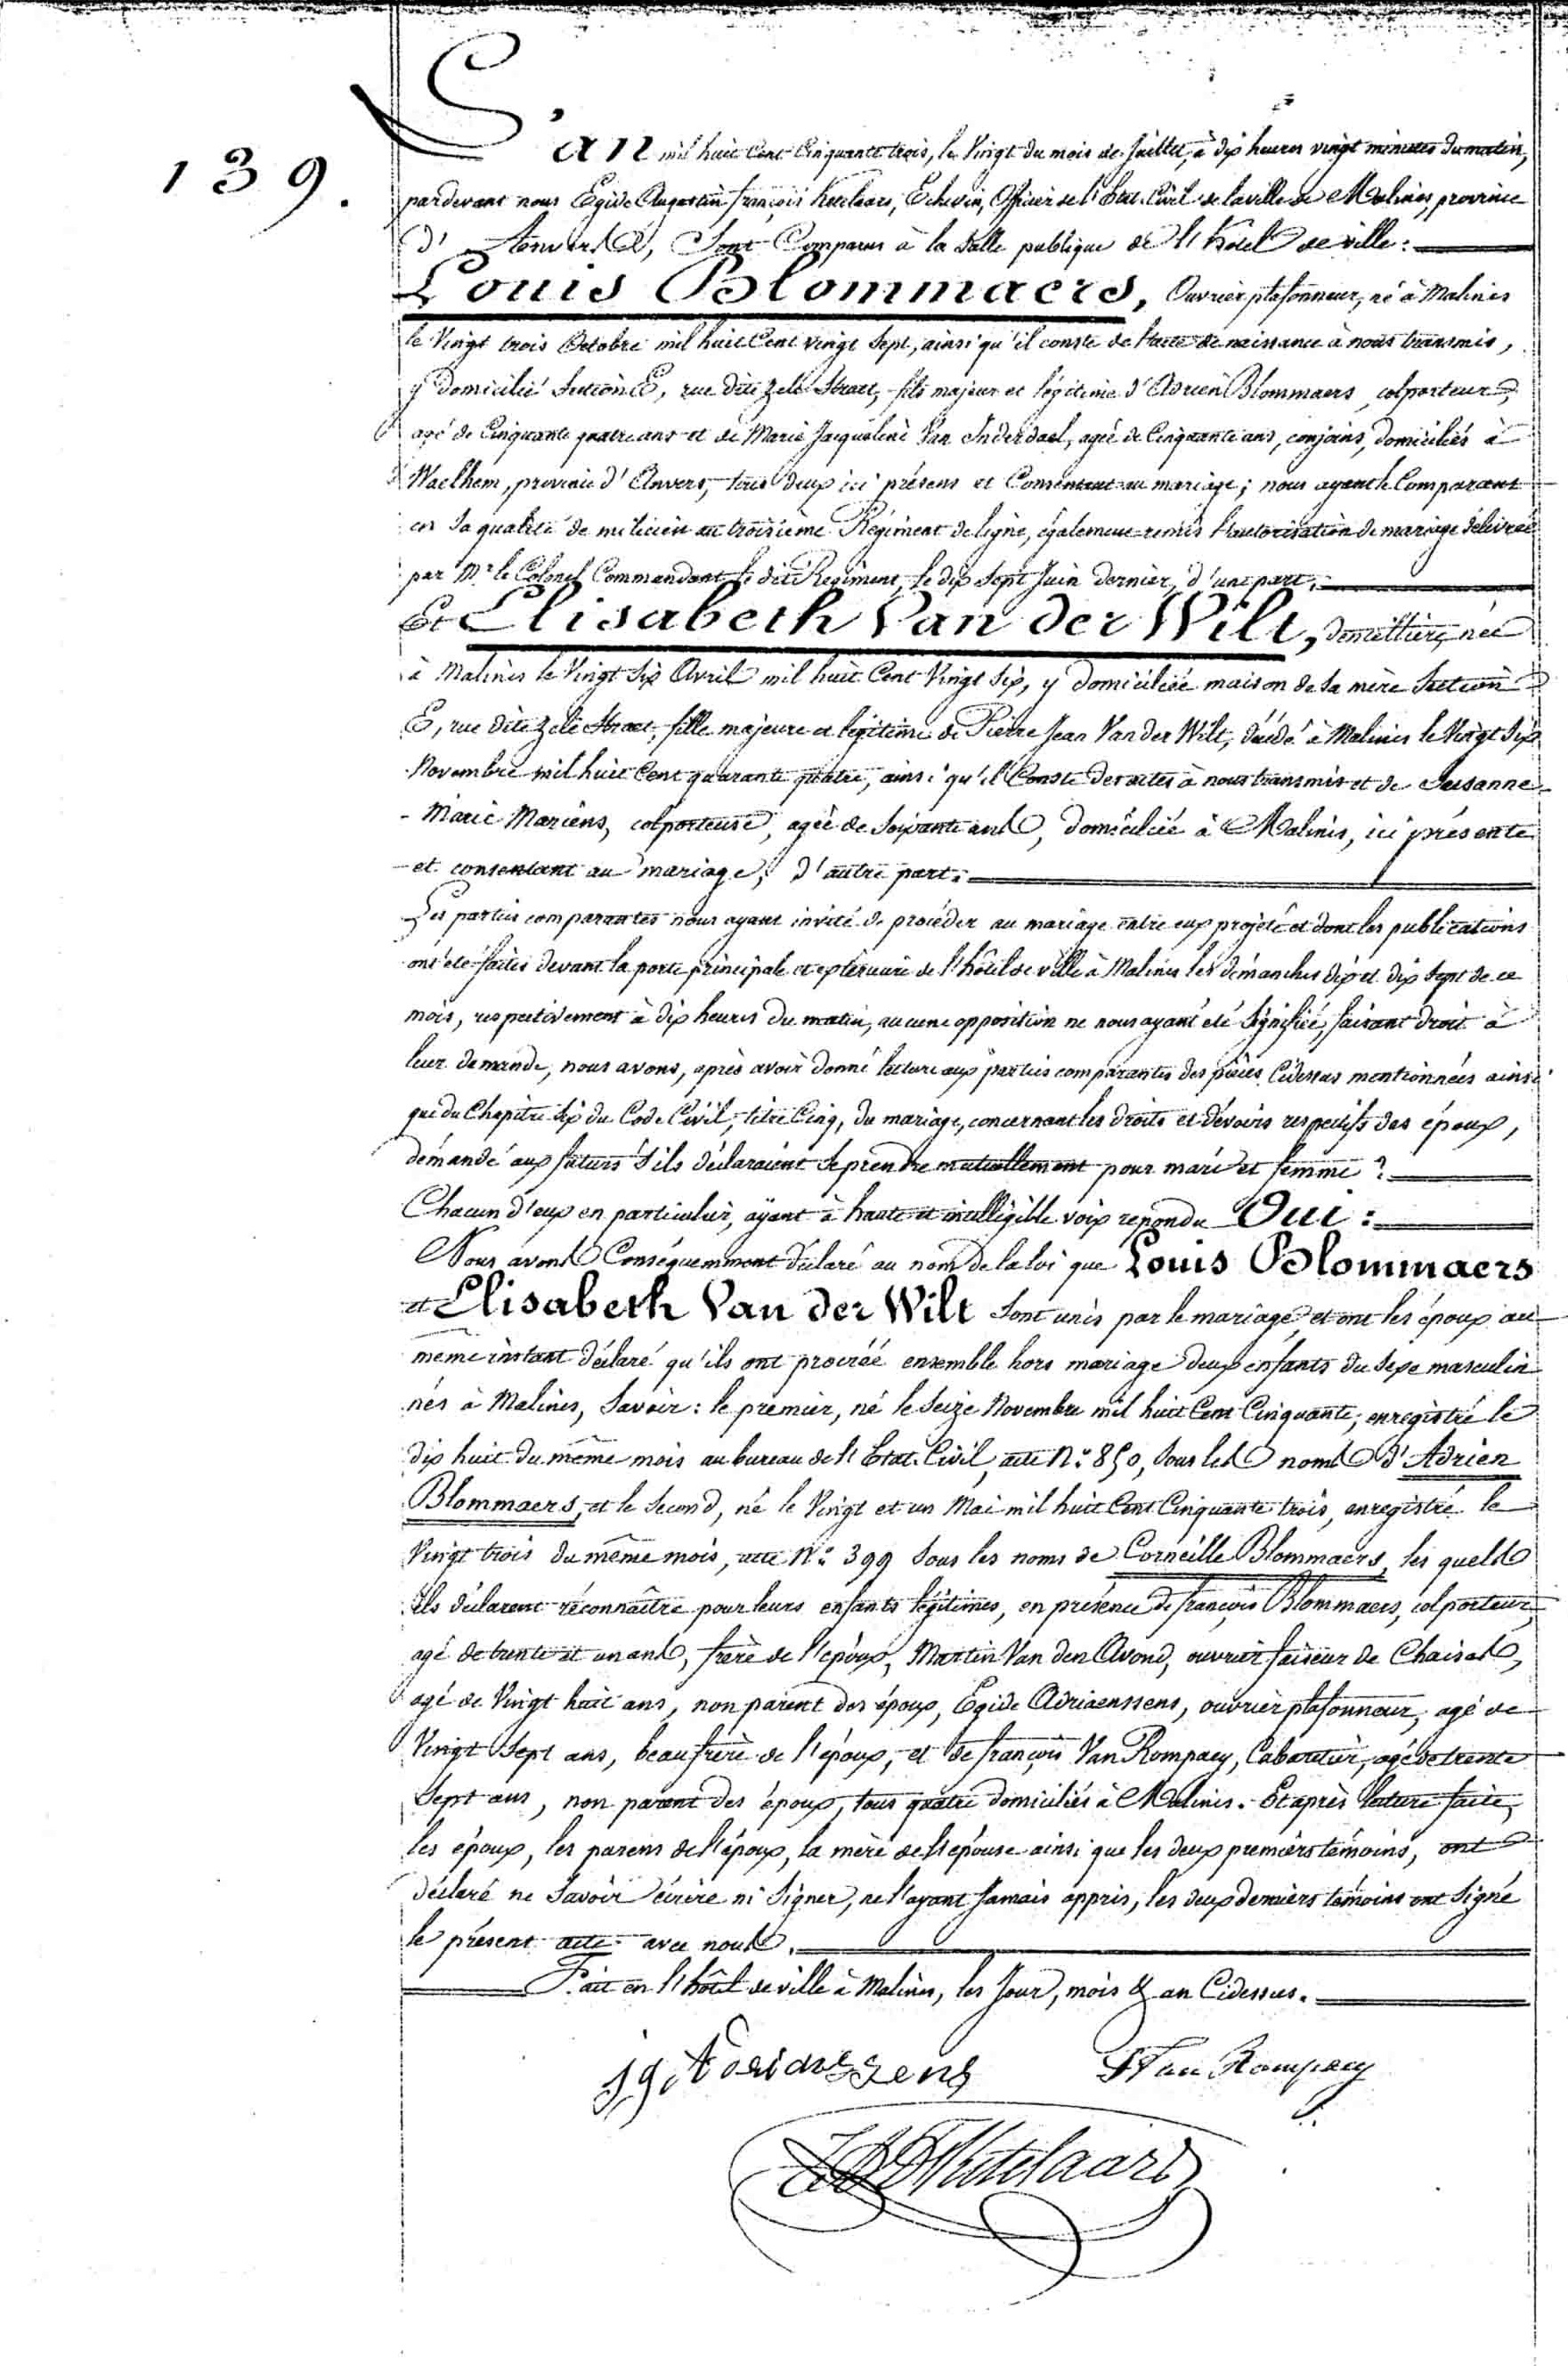 139.
L'an mil huit Cent Cinquante trois, le Vingt du mois de Juillet, à dix heures vingt minutes du matin,
pardevant nous Egide Augustin françois Ketelaars, Echevin, Officier de l'Etat-Civil de la ville de Malines, province
d'Anvers, Sont Comparus à la Salle publique de l'hôtel de ville:
Louis Blommaers, Ouvrier plafonneur, né à Malines
le Vingt trois Octobre mil huit Cent vingt Sept, ainsi qu'il conste de l'acte de naissance à nous transmis,
y domicilié Section E, rue dite zele Straet, fils majeur et légitime d'Adrien Blommaers, colporteur,
agé de Cinquante quatre ans et de Marie Jacqueline Van Inderdael, agée de Cinquante ans, conjoins, domiciliés à
Waelhem, province d'Anvers, tous deux ici présens et Consentant au mariage; nous ayant le Comparant
en Sa qualité de milicien au troisième Régiment de ligne, également remis l'autorisation de mariage délivrée
par Mr. le Colonel Commandant le dit Regiment, le dix Sept Juin dernier, d'une part.
Et Elisabeth Van der Wilt, dentellière, née
à Malines le Vingt Six Avril mil huit Cent Vingt Six, y domiciliée maison de Sa mère Section
E, rue dite zele Straet, fille majeure et légitime de Pierre Jean Van der Wilt, décédé à Malines le Vingt Six
Novembre mil huit Cent quarante quatre, ainsi qu'il Conste des actes à nous transmis et de Susanne
Marie Mariens, colporteuse, agée de Soixante ans, domiciliée à Malines, ici présente
et consentant au mariage, d'autre part.
Les parties comparantes nous ayant invité de procéder au mariage entre eux projeté et dont les publications
ont été faites devant la porte principale et extérieure de l'hôtel de ville à Malines les dimanches dix et dix Sept de ce
mois, respectivement à dix heures du matin, aucune opposition ne nous ayant été Signifiée, faisant droit à
leur demande, nous avons, après avoir donné lecture aux parties comparantes des pièces Cidessus mentionnées ainsi
que du Chapitre Six du Code Civil, titre Cinq, du mariage, concernant les droits et devoirs respectifs des époux,
demandé aux futurs S'ils déclaraient Se prendre mutuellement pour mari et femme?
Chacun d'eux en particulier, ayant à haute et intelligible voix repondu Oui:
Nous avons Conséquemment déclaré au nom de la loi que Louis Blommaers
et Elisabeth Van der Wilt Sont unis par le mariage, et ont les époux au
même instant déclaré qu'ils ont procréé ensemble hors mariage deux enfants du Sexe masculin
nés à Malines, Savoir: le premier, né le Seize Novembre mil huit Cent Cinquante, enregistré le
dix huit du même mois au bureau de l'Etat-Civil, acte No. 850, Sous les noms d'Adrien
Blommaers, et le Second, né le Vingt et un Mai mil huit Cent Cinquante trois, enregistré le
Vingt trois du même mois, acte No. 399 Sous les noms de Corneille Blommaers, les quels
ils déclarent réconnaître pour leurs enfants légitimes, en présence de françois Blommaers, colporteur,
agé de trente et un ans, frère de l'epoux, Martin Van den Avond, ouvrier faiseur de Chaises,
agé de Vingt huit ans, non parent des époux, Egide Adriaenssens, ouvrier plafonneur, agé de
Vingt Sept ans, beaufrère de l'époux, et de françois Van Rompaey, Cabaretier, agé de trente
Sept ans, non parent des époux, tous quatre domiciliés à Malines. Et après lecture faite,
les époux, les parens de l'époux, la mère de l'épouse ainsi que les deux premiers témoins, ont
déclaré ne Savoir écrire ni Signer, ne l'ayant Jamais appris, les deux derniers témoins ont Signé
le présent acte avec nous.
Fait en l'hôtel de ville à Malines, les Jour, mois & an Cidessus.
Van Rompaey
Ketelaars